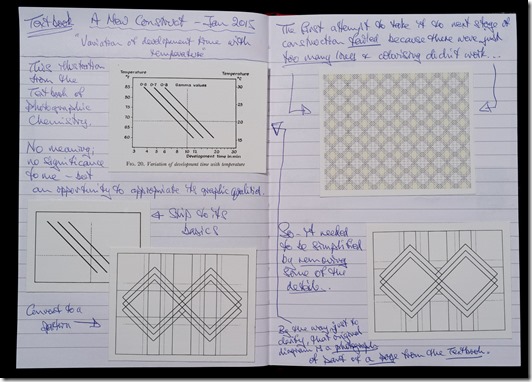 Textbook A New Construct - Jan 2015
"Variation of development time with
temperature"
This illustration
from the
Textbook of
photographic
Chemistry.
No meaning;
no significance
to me - but
an opportunity to appropriate its graphic qualities.
Temperature
Temperature
0·6 0·7 0·8
Gamma values
85
80
75
70
65
60
30
20
15
3 4 5 6 7 8 9 10 15 20 25 30
Development time in min
FIG. 20. Variation of development time with temperature
Strip to its
basics
Convert to a
pattern
The first attempt to take it to next stage of
construction failed because there were just
too many lines & colourising didn't work...
So - it needed
to be simplified
by removing
some of the
detail..
By the way, just to
clarify, that original
diagram is a photograph
of part of a page from the Textbook.